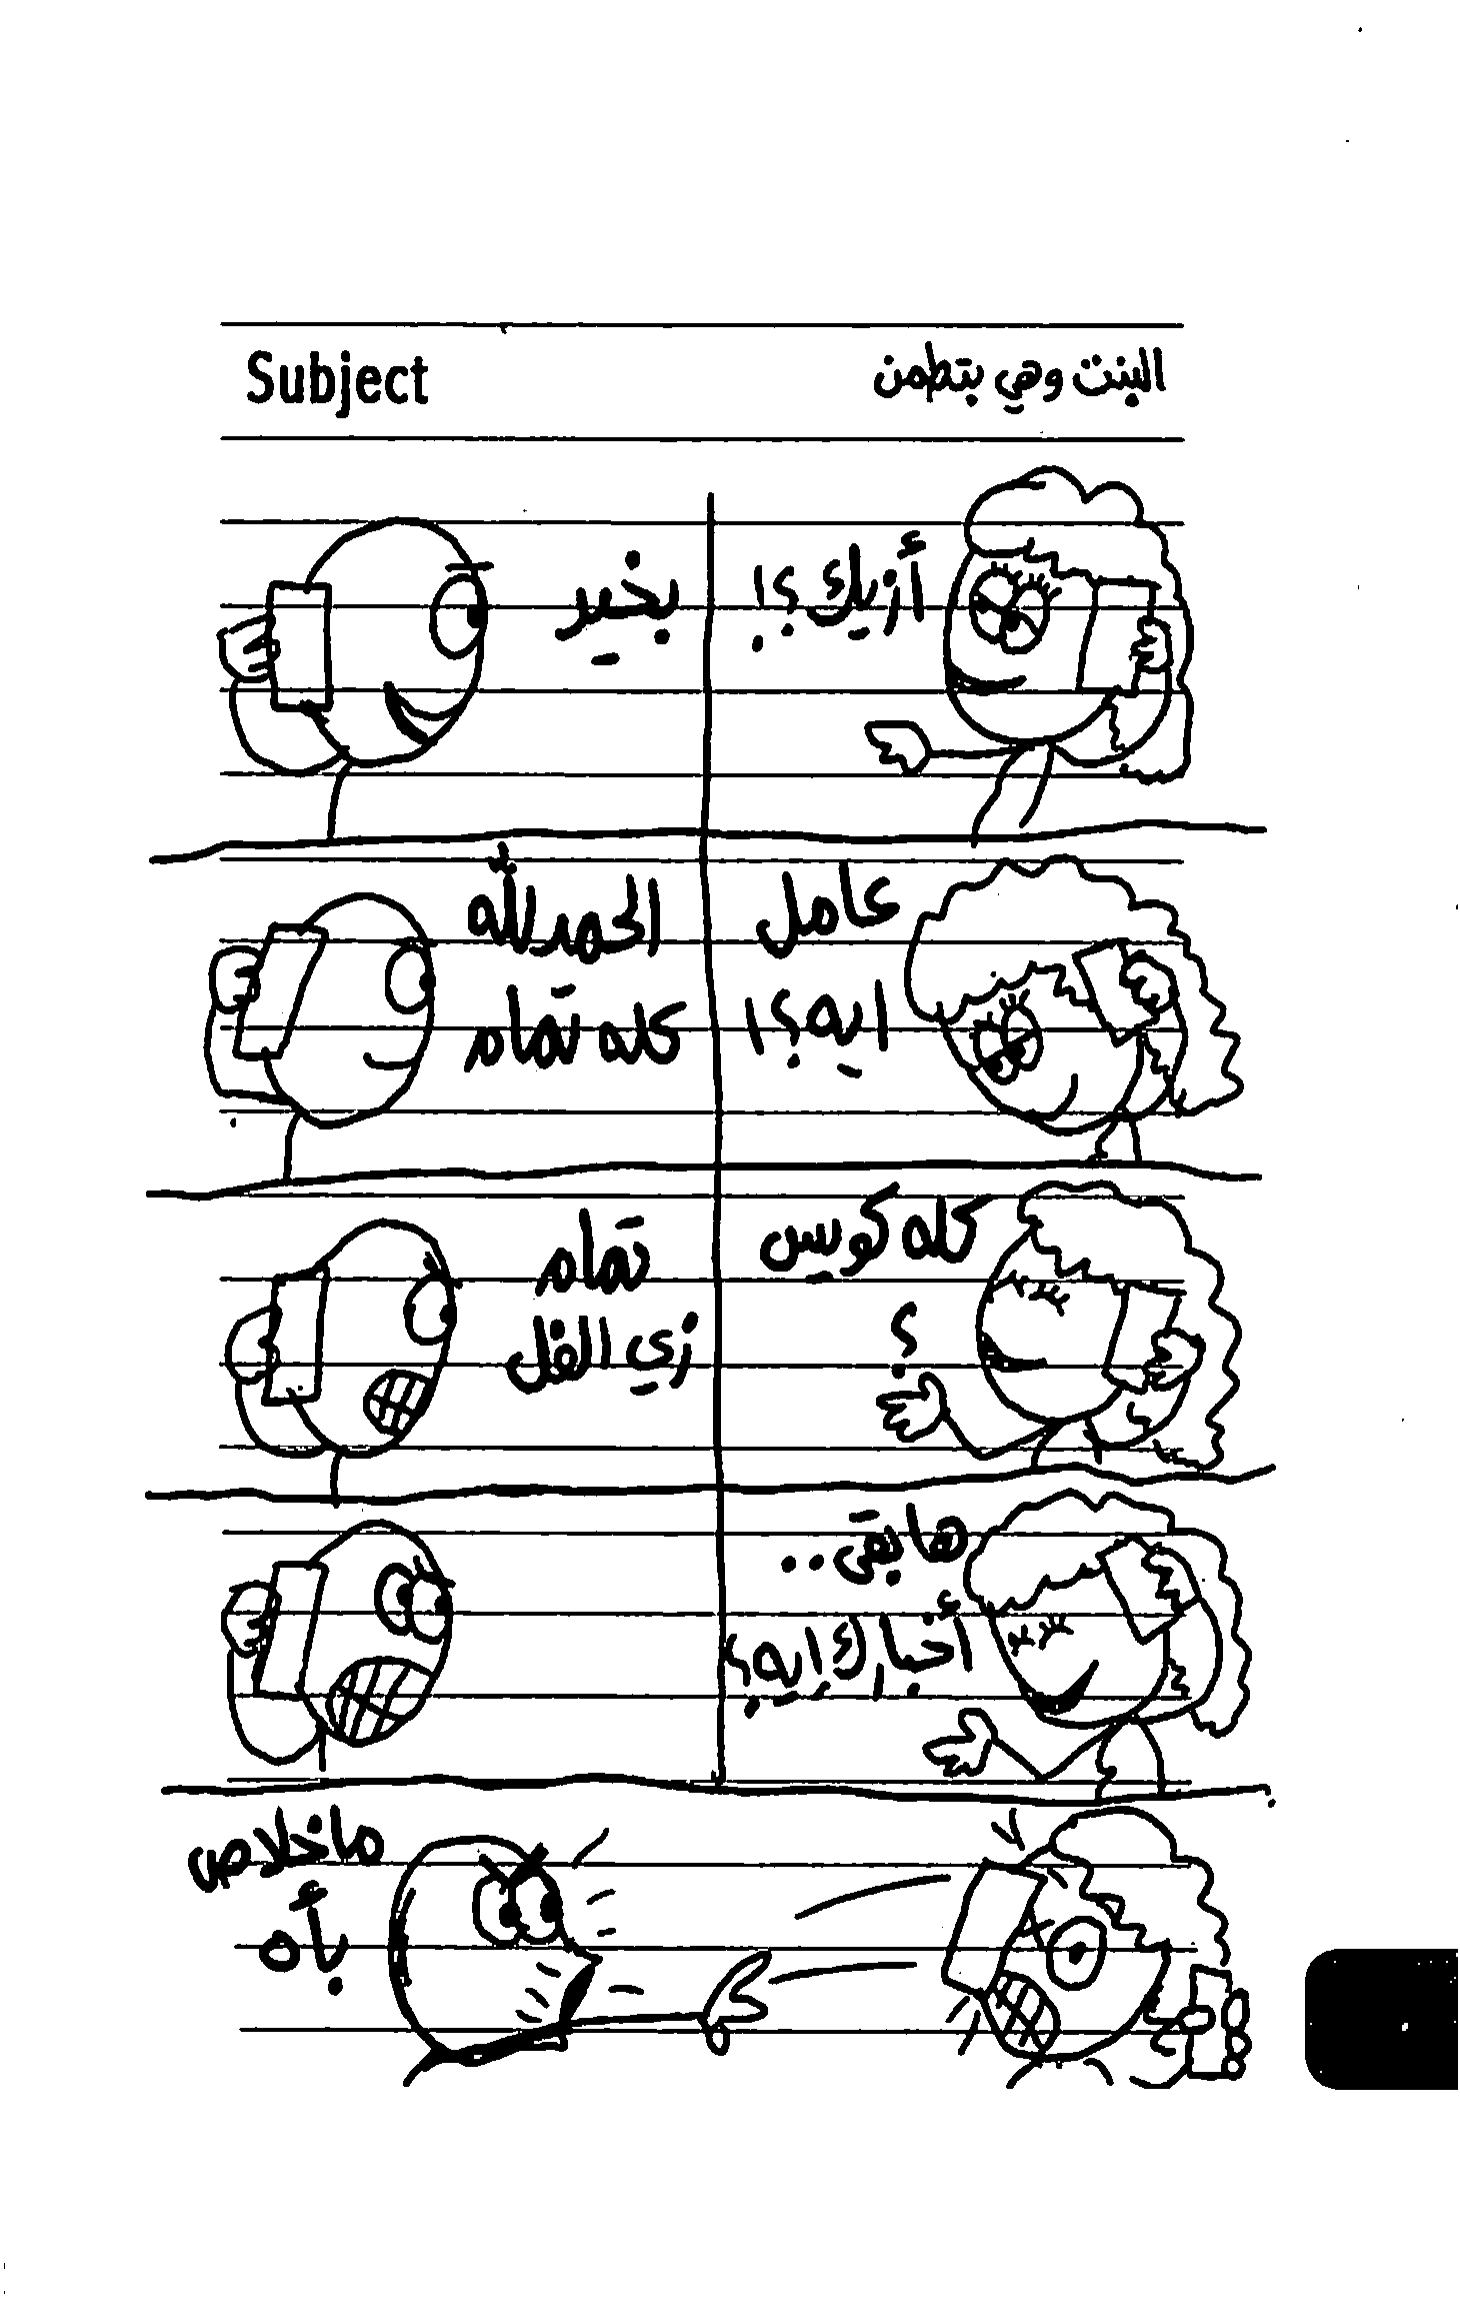 Subject
البنت وهي بتطمن
أزيك؟!
بخير
عامل
ايه؟!
الحمد لله
كله تمام
كله كويس
؟
تمام
زي الفل
هابقى..
أخبارك إيه؟
ما خلاص
بأه